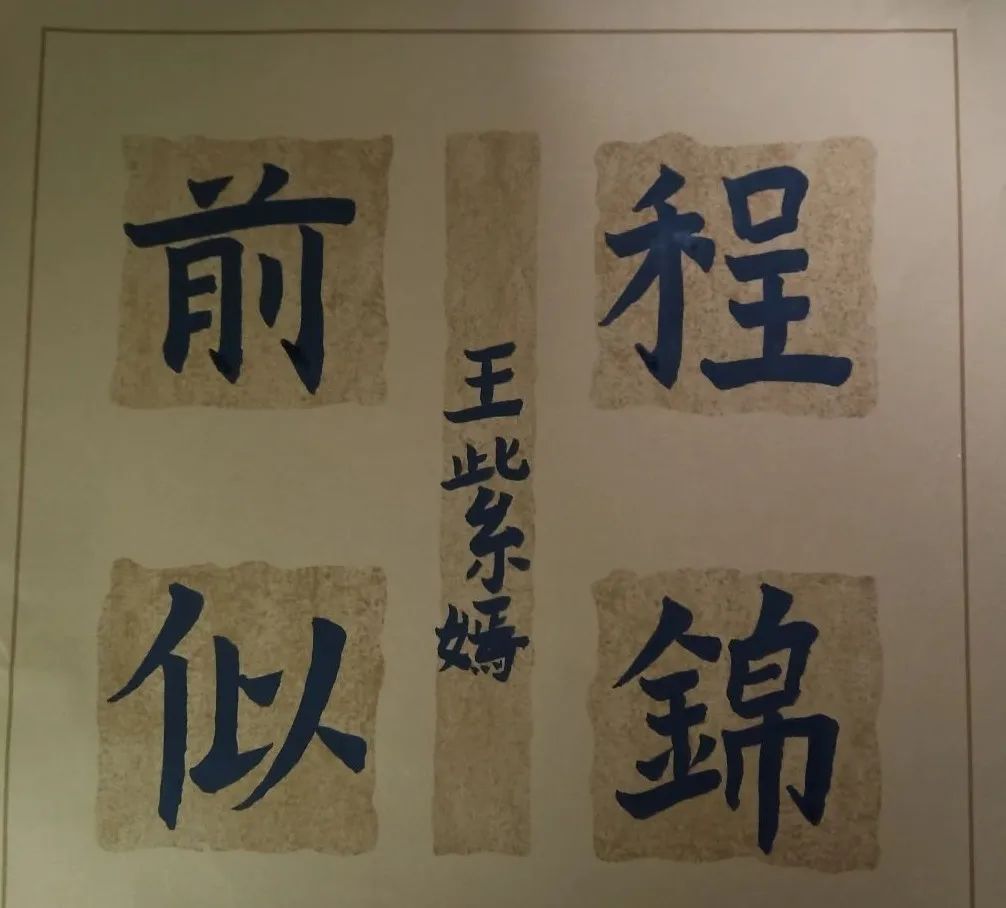 前程
似錦
王紫嫣